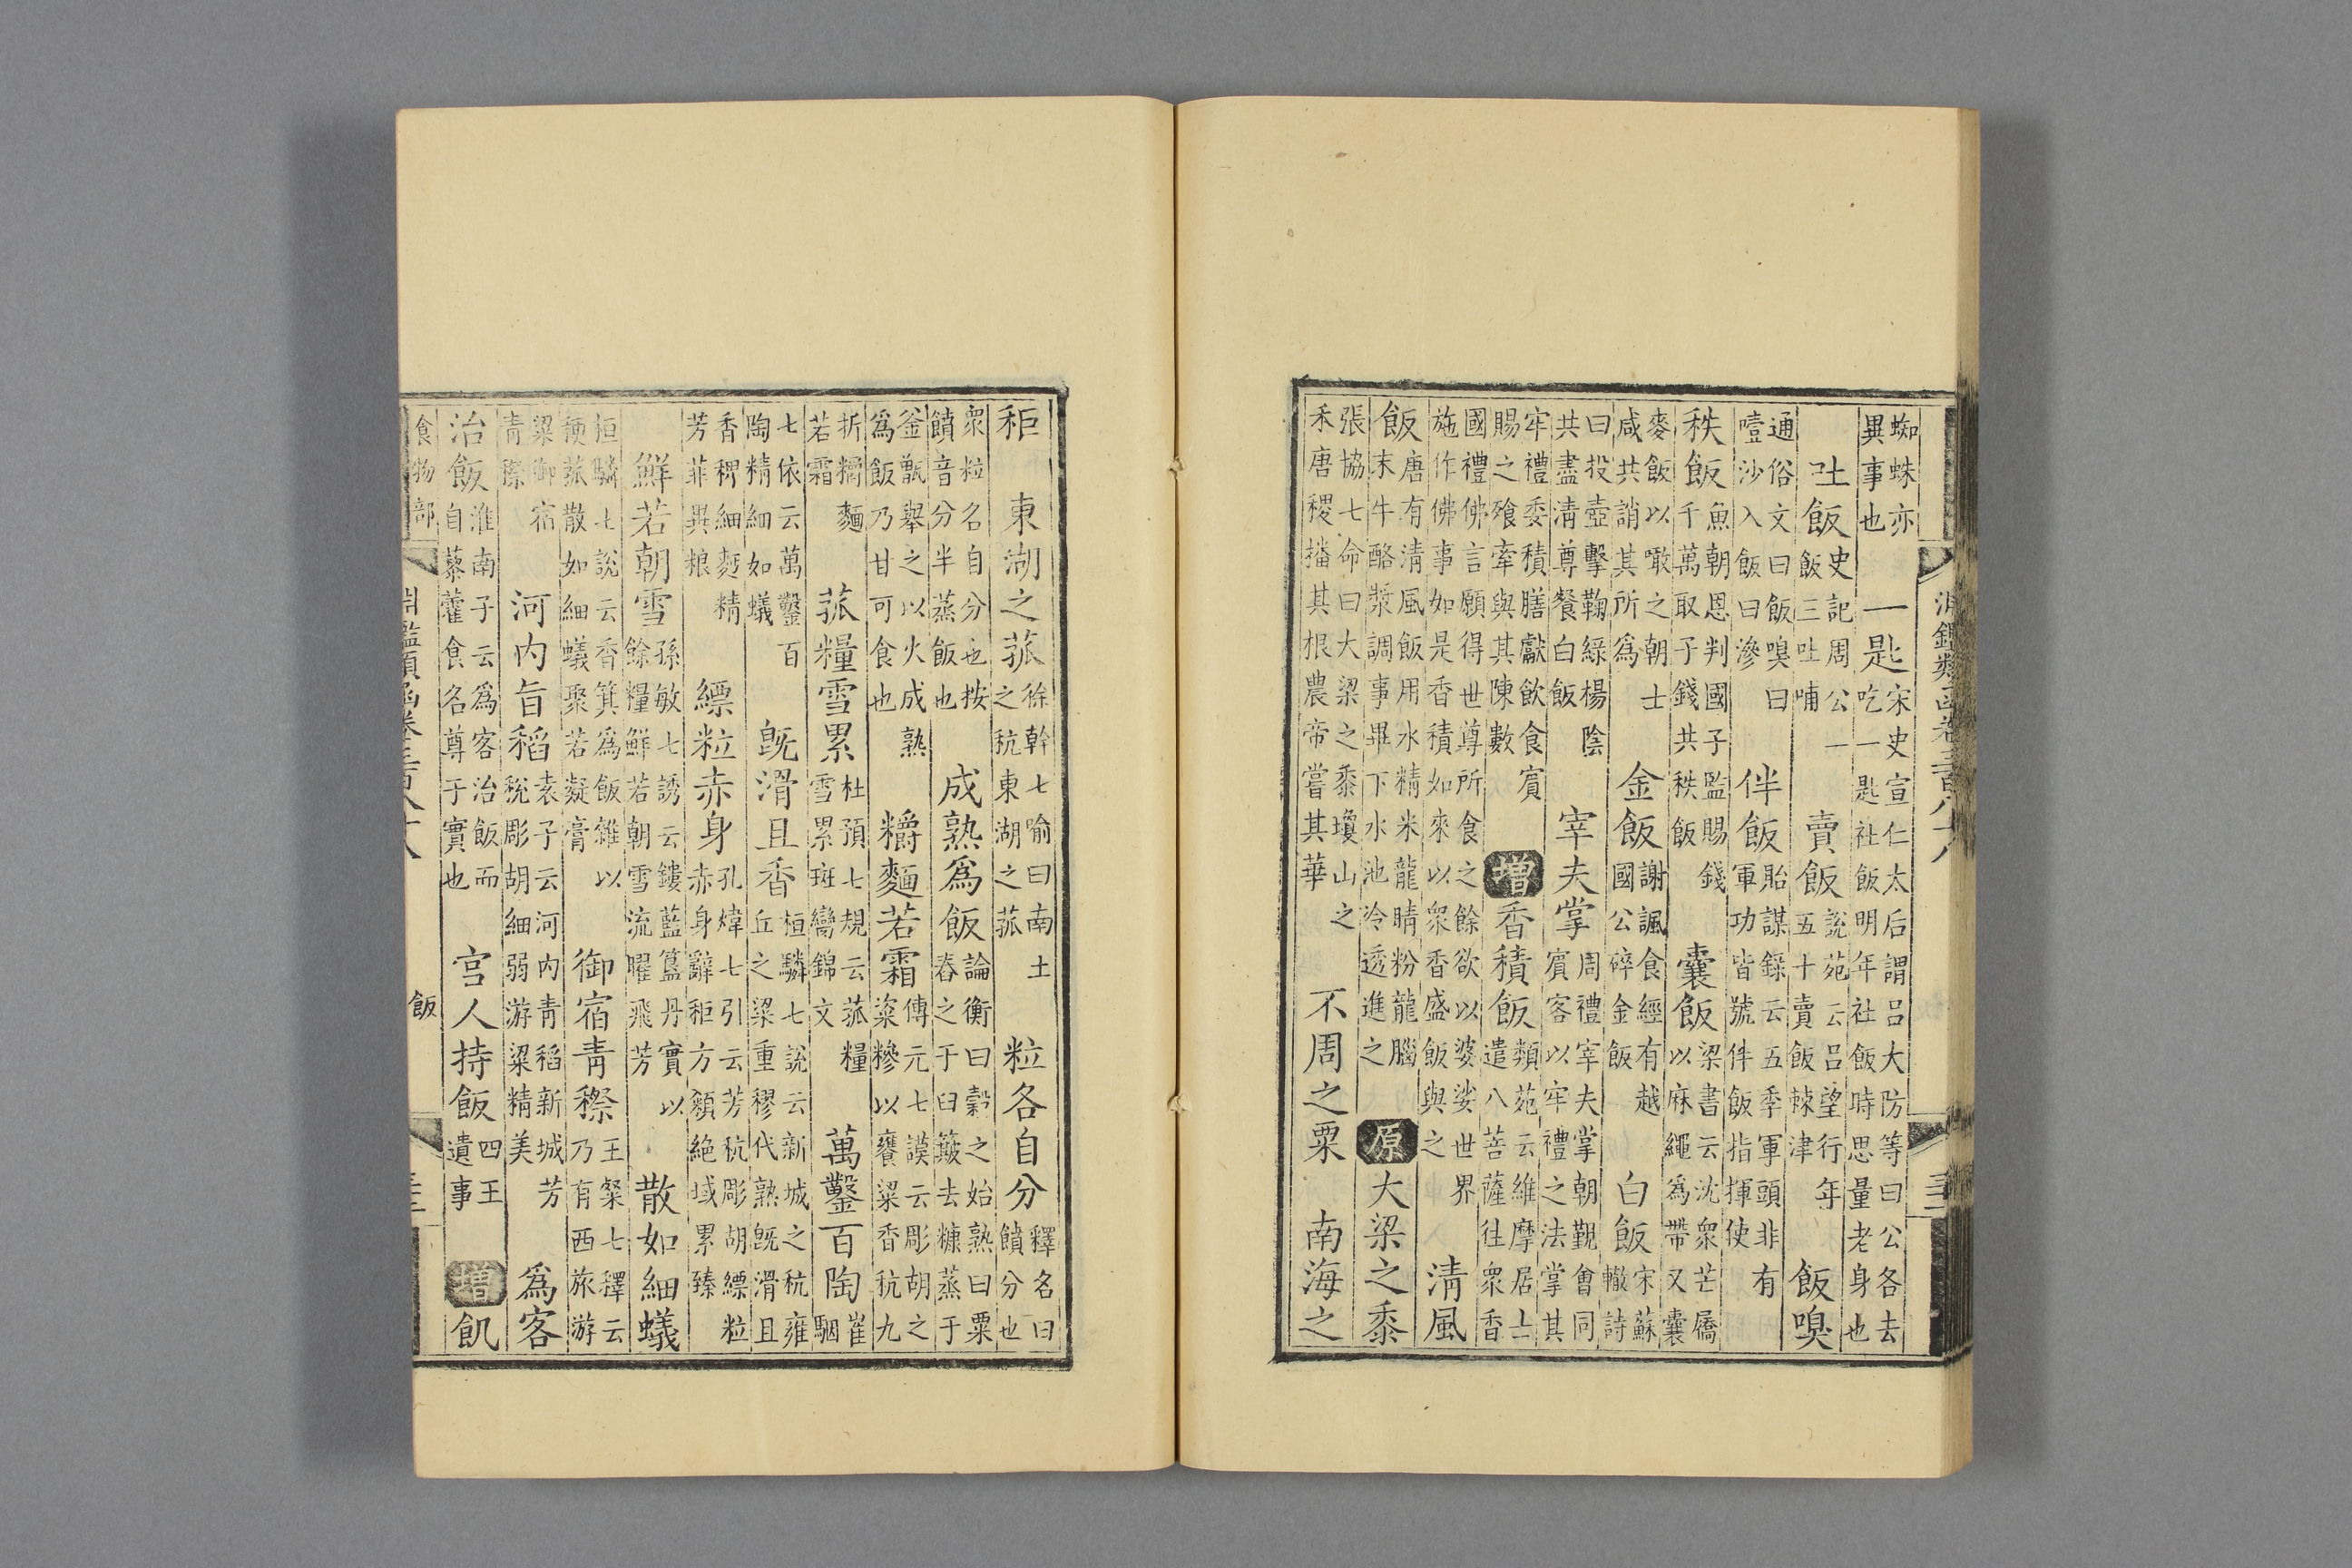 蜘蛛亦
異事也
一匙
宋史宣仁太后謂呂大防等曰公各去
吃一匙社飯明年社飯時思量老身也
吐飯
史記周公一
飯三吐哺
賣飯
說苑云呂望行年
五十賣飯棘津
飯嗅
通俗文曰飯嗅曰
噎沙入飯曰滲
伴飯
貽謀錄云五季軍頭非有
軍功皆號伴飯指揮使
秩飯
魚朝恩判國子監賜錢
千萬取子錢共秩飯
囊飯
梁書云沈衆芒屩
以麻繩爲帶又囊
麥飯以噉之朝士
咸共誚其所爲
金飯
謝諷食經有越
國公碎金飯
白飯
宋蘇
轍詩
曰投壺擊鞠綠楊陰
共盡淸尊餐白飯
宰夫掌
周禮宰夫掌朝覲會同
賓客以牢禮之法掌其
牢禮委積膳獻飲食賓
賜之飱牽與其陳數
增
香積飯
類苑云維摩居士
遣八菩薩往衆香
國禮佛言願得世尊所食之餘欲以婆娑世界
施作佛事如是香積如來以衆香盛飯與之
淸風
飯
唐有淸風飯用水精米龍睛粉龍腦
末牛酪漿調事畢下水池冷透進之
原
大梁之黍
張協七命曰大梁之黍瓊山之
禾唐稷播其根農帝嘗其華
不周之粟
南海之
淵鑑類函卷三百八十八
秬
東湖之菰
徐幹七喻曰南土
之秔東湖之菰
粒各自分
釋名曰
饙分也
衆粒名自分也按
饙音分半蒸飯也
成熟爲飯
論衡曰穀之始熟曰粟
舂之于臼簸去糠蒸于
釜甑舉之以火成熟
爲飯乃甘可食也
糈麵若霜
傅元七謨云彫胡之
粢糝以饔粱香秔九
折糈麵
若霜
菰糧雪累
杜預七規云菰糧
雪累斑鸞錦文
萬鑿百陶
崔駰
七依云萬鑿百
陶精細如蟻
旣滑且香
桓驎七說云新城之秔雍
丘之粱重穋代熟旣滑且
香稗細麪精
芳菲異粮
縹粒赤身
孔煒七引云芳秔彫胡縹粒
赤身辭秬方額絶域累臻
鮮若朝雪
孫敏七誘云鏤藍簋丹實以
餘糧鮮若朝雪流曜飛芳
散如細蟻
桓驎七說云香箕爲飯雜以
稉菰散如細蟻聚若凝膏
御宿靑穄
王粲七釋云
乃有西旅游
粱御宿
青穄
河内旨稻
袁子云河内靑稻新城芳
稅彫胡細弱游粱精美
爲客
治飯
淮南子云爲客治飯而
自藜藿食名尊于實也
宫人持飯
四王
遺事
增
飢
食物部
淵鑑類函卷三百八十八
飯